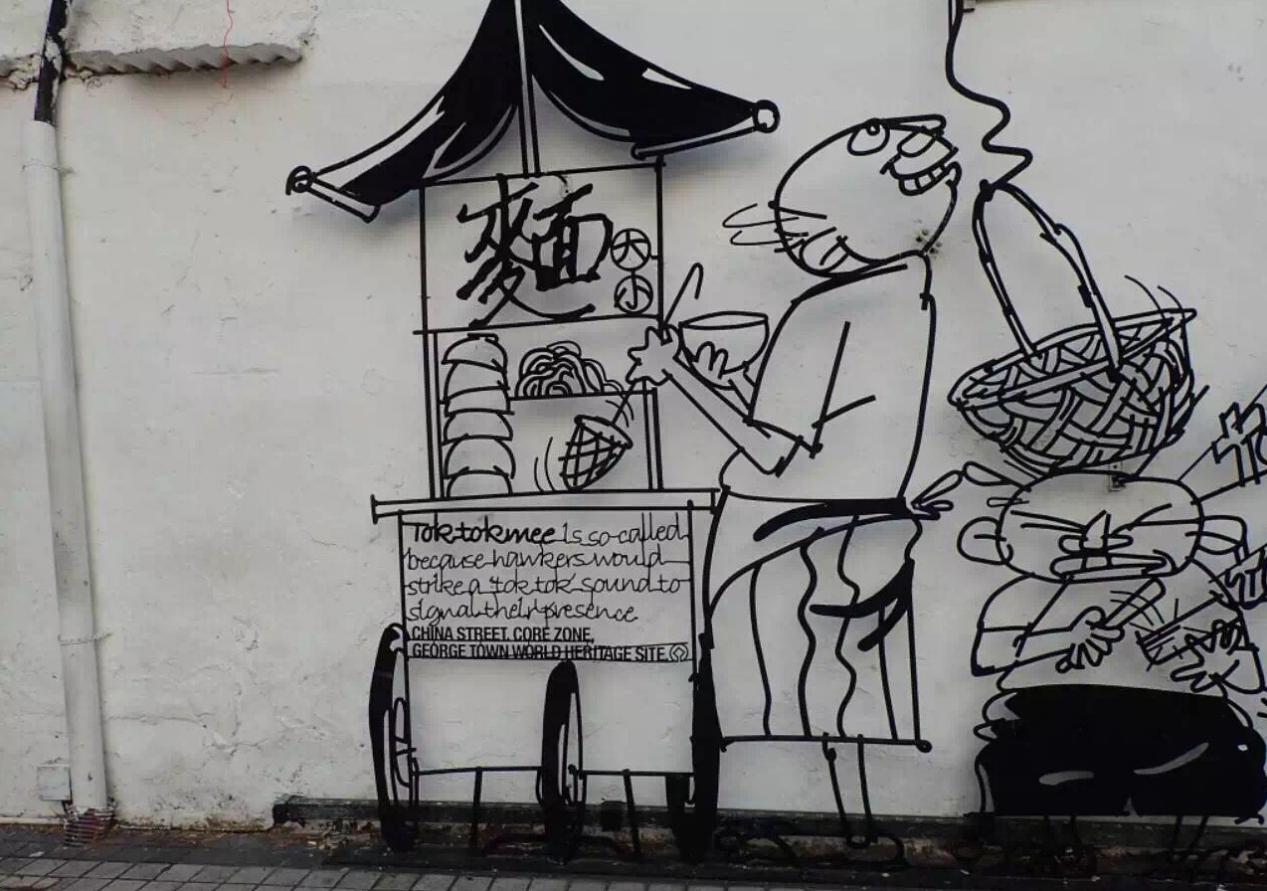 麵
大
小
Tok tok mee is so-called
because hawkers would
strike a 'tok tok' sound to
signal their presence
CHINA STREET, CORE ZONE,
GEORGE TOWN WORLD HERITAGE SITE